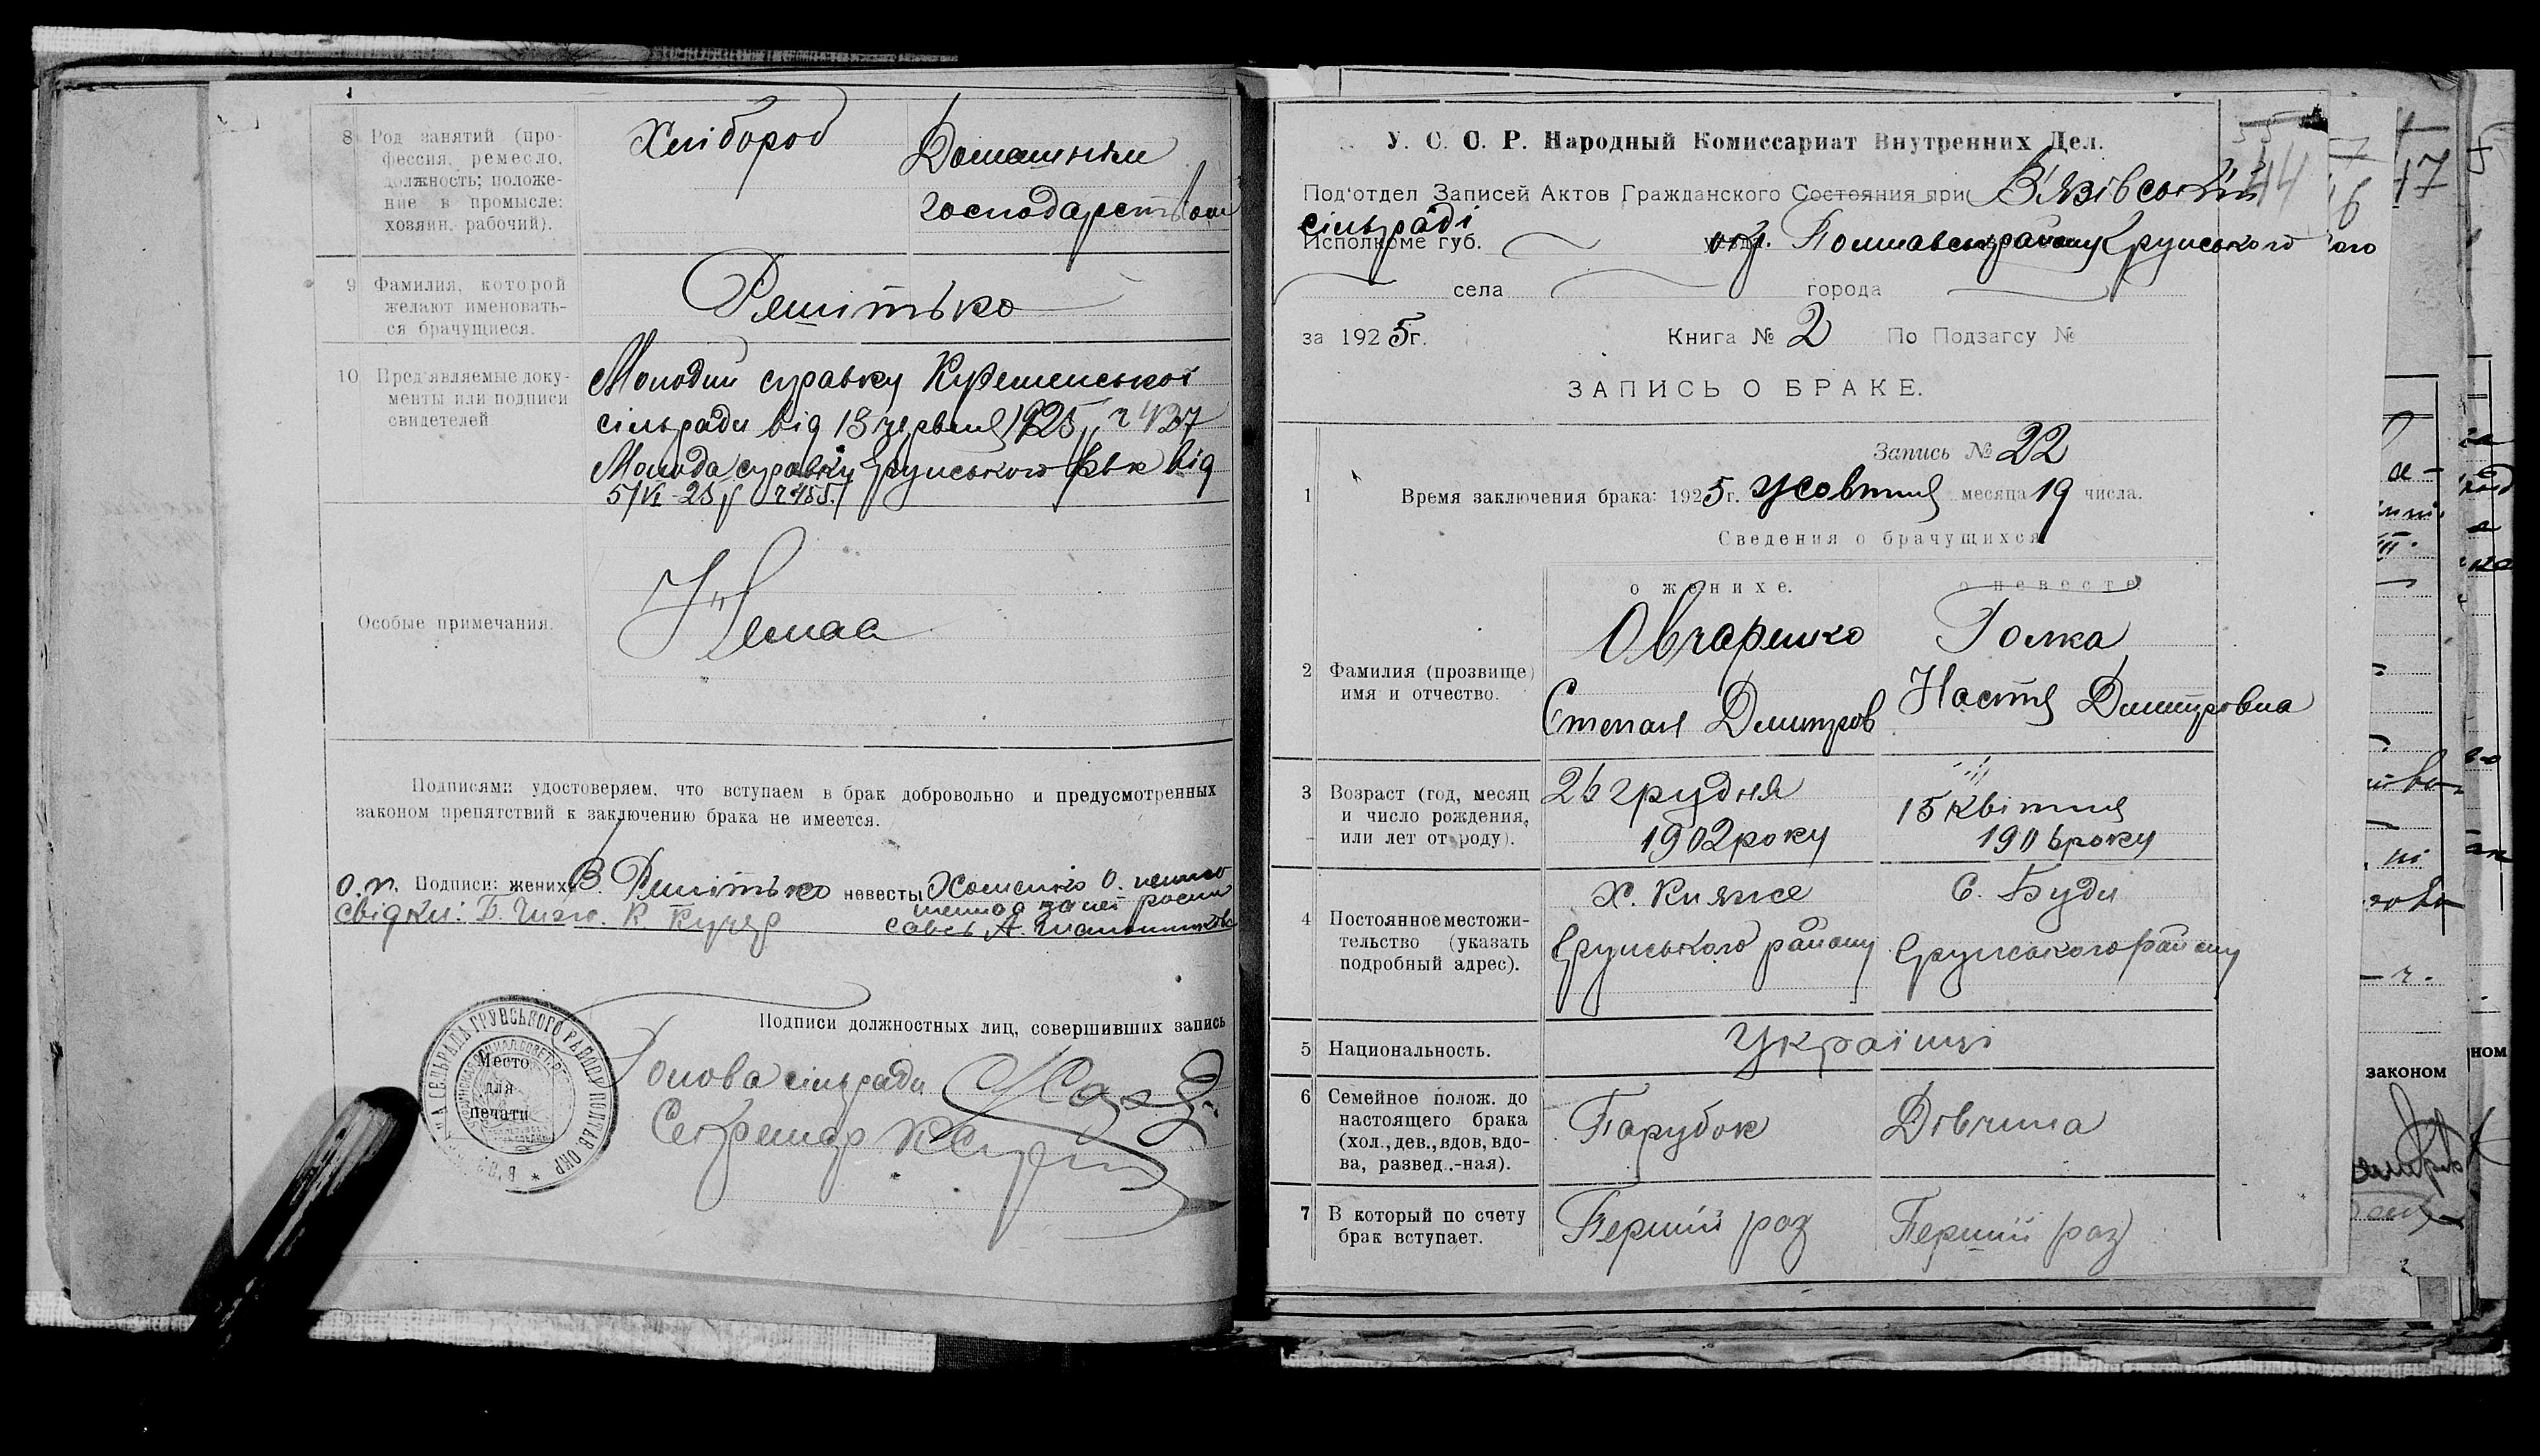 8 Род занятий (про-
фессия, ремесло,
должность; положе-
ние в промысле:
хозяин, рабочий).
Хлібороб
Домашнім
господарством
9 Фамилия, которой
желают именовать-
ся брачущиеся.
Решітько
10 Пред'являемые доку-
менты или подписи
свидетелей
Молодий справку
сільради від 13 червня 1925 р ч 437
Молода справку Грунського від
5/VI-25 р ч 455.
Особые примечания.
Немаа
Подписями удостоверяем, что вступаем в брак добровольно и предусмотренных
законом препятствий к заключению брака не имеется.
О.п. Подписи: жениха В. Решітько невесты Хоменко О. непись
менна за неї роспи
свідки: К. Кучер
савсь А.
Подписи должностных лиц, совершивших запись
Голова сільради
Секретар
СЕЛЬРАДА ГРУНСЬКОГО РАЙОНУ ПОЛТАВ. ОКР
Место
для
печати
У. С. С. Р. Народный Комиссариат Внутренних Дел.
44
Под'отдел Записей Актов Гражданского Состояния при В'язівській
сільраді
Исполкоме губ. окр. Полтавськ району Грунського
села города
за 1925 г. Книга № 2 По Подзагсу №
ЗАПИСЬ О БРАКЕ.
Запись № 22
1 Время заключения брака: 1925 г. Жовтня месяца 19 числа.
Сведения о брачущихся
о женихе. о невесте
2 Фамилия (прозвище)
имя и отчество.
Овчаренко
Степан Дмитров
Голка
Настя Дмитровна
3 Возраст (год, месяц
и число рождения,
или лет от роду).
26 грудня
1902 року
15 Квітня
1906 року
4 Постоянное местожи-
тельство (указать
подробный адрес).
Х. Княже
Грунського району
С. Буди
Грунського району
5 Национальность.
Українці
6 Семейное полож. до
настоящего брака
(хол., дев., вдов, вдо-
ва, развед.-ная).
Парубок
Дівчина
7 В который по счету
брак вступает.
Перший раз
Перший раз
17
законом